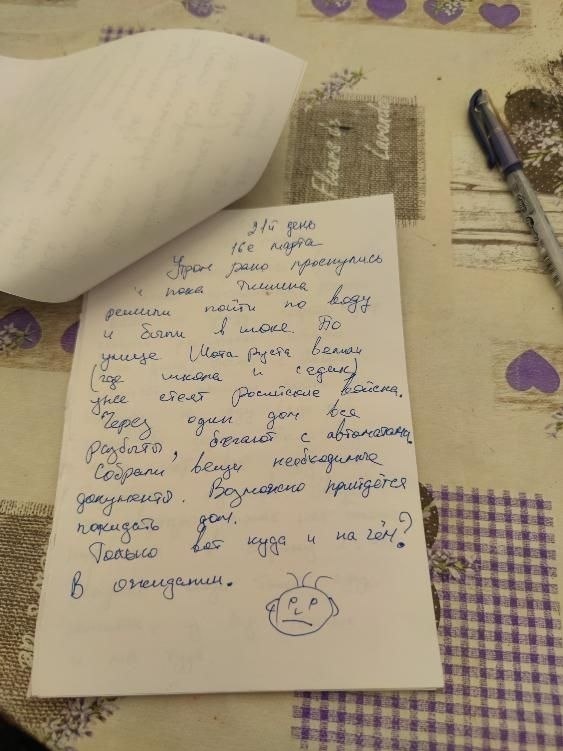 Flores is
Lavande
21й день
16е марта
Утром рано проснулись
и пока тишина
решили пойти по воду
и были в шоке. По
улице Шота Руста вели
(где школа и седик)
уже стоят Росийские войска.
Через один дом все
разбиты, бегают с автоматами
Собрали вещи необходимые
документы. Возможно прийдётся
покидать дом.
Только вот куда и на чём?
В ожидании.